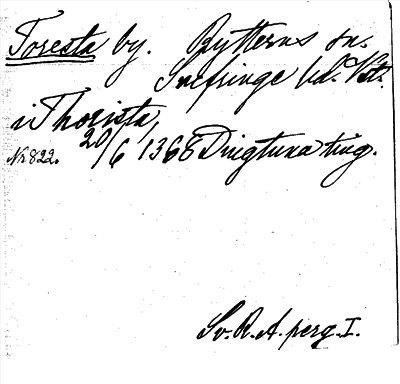 Toresta by. Rytterns sn.
Snefringe hd. Vstl.
i Thorista,
Nr 822. 20/6 1368 Dingtuna ting.
Sv. R. A. perg. I.